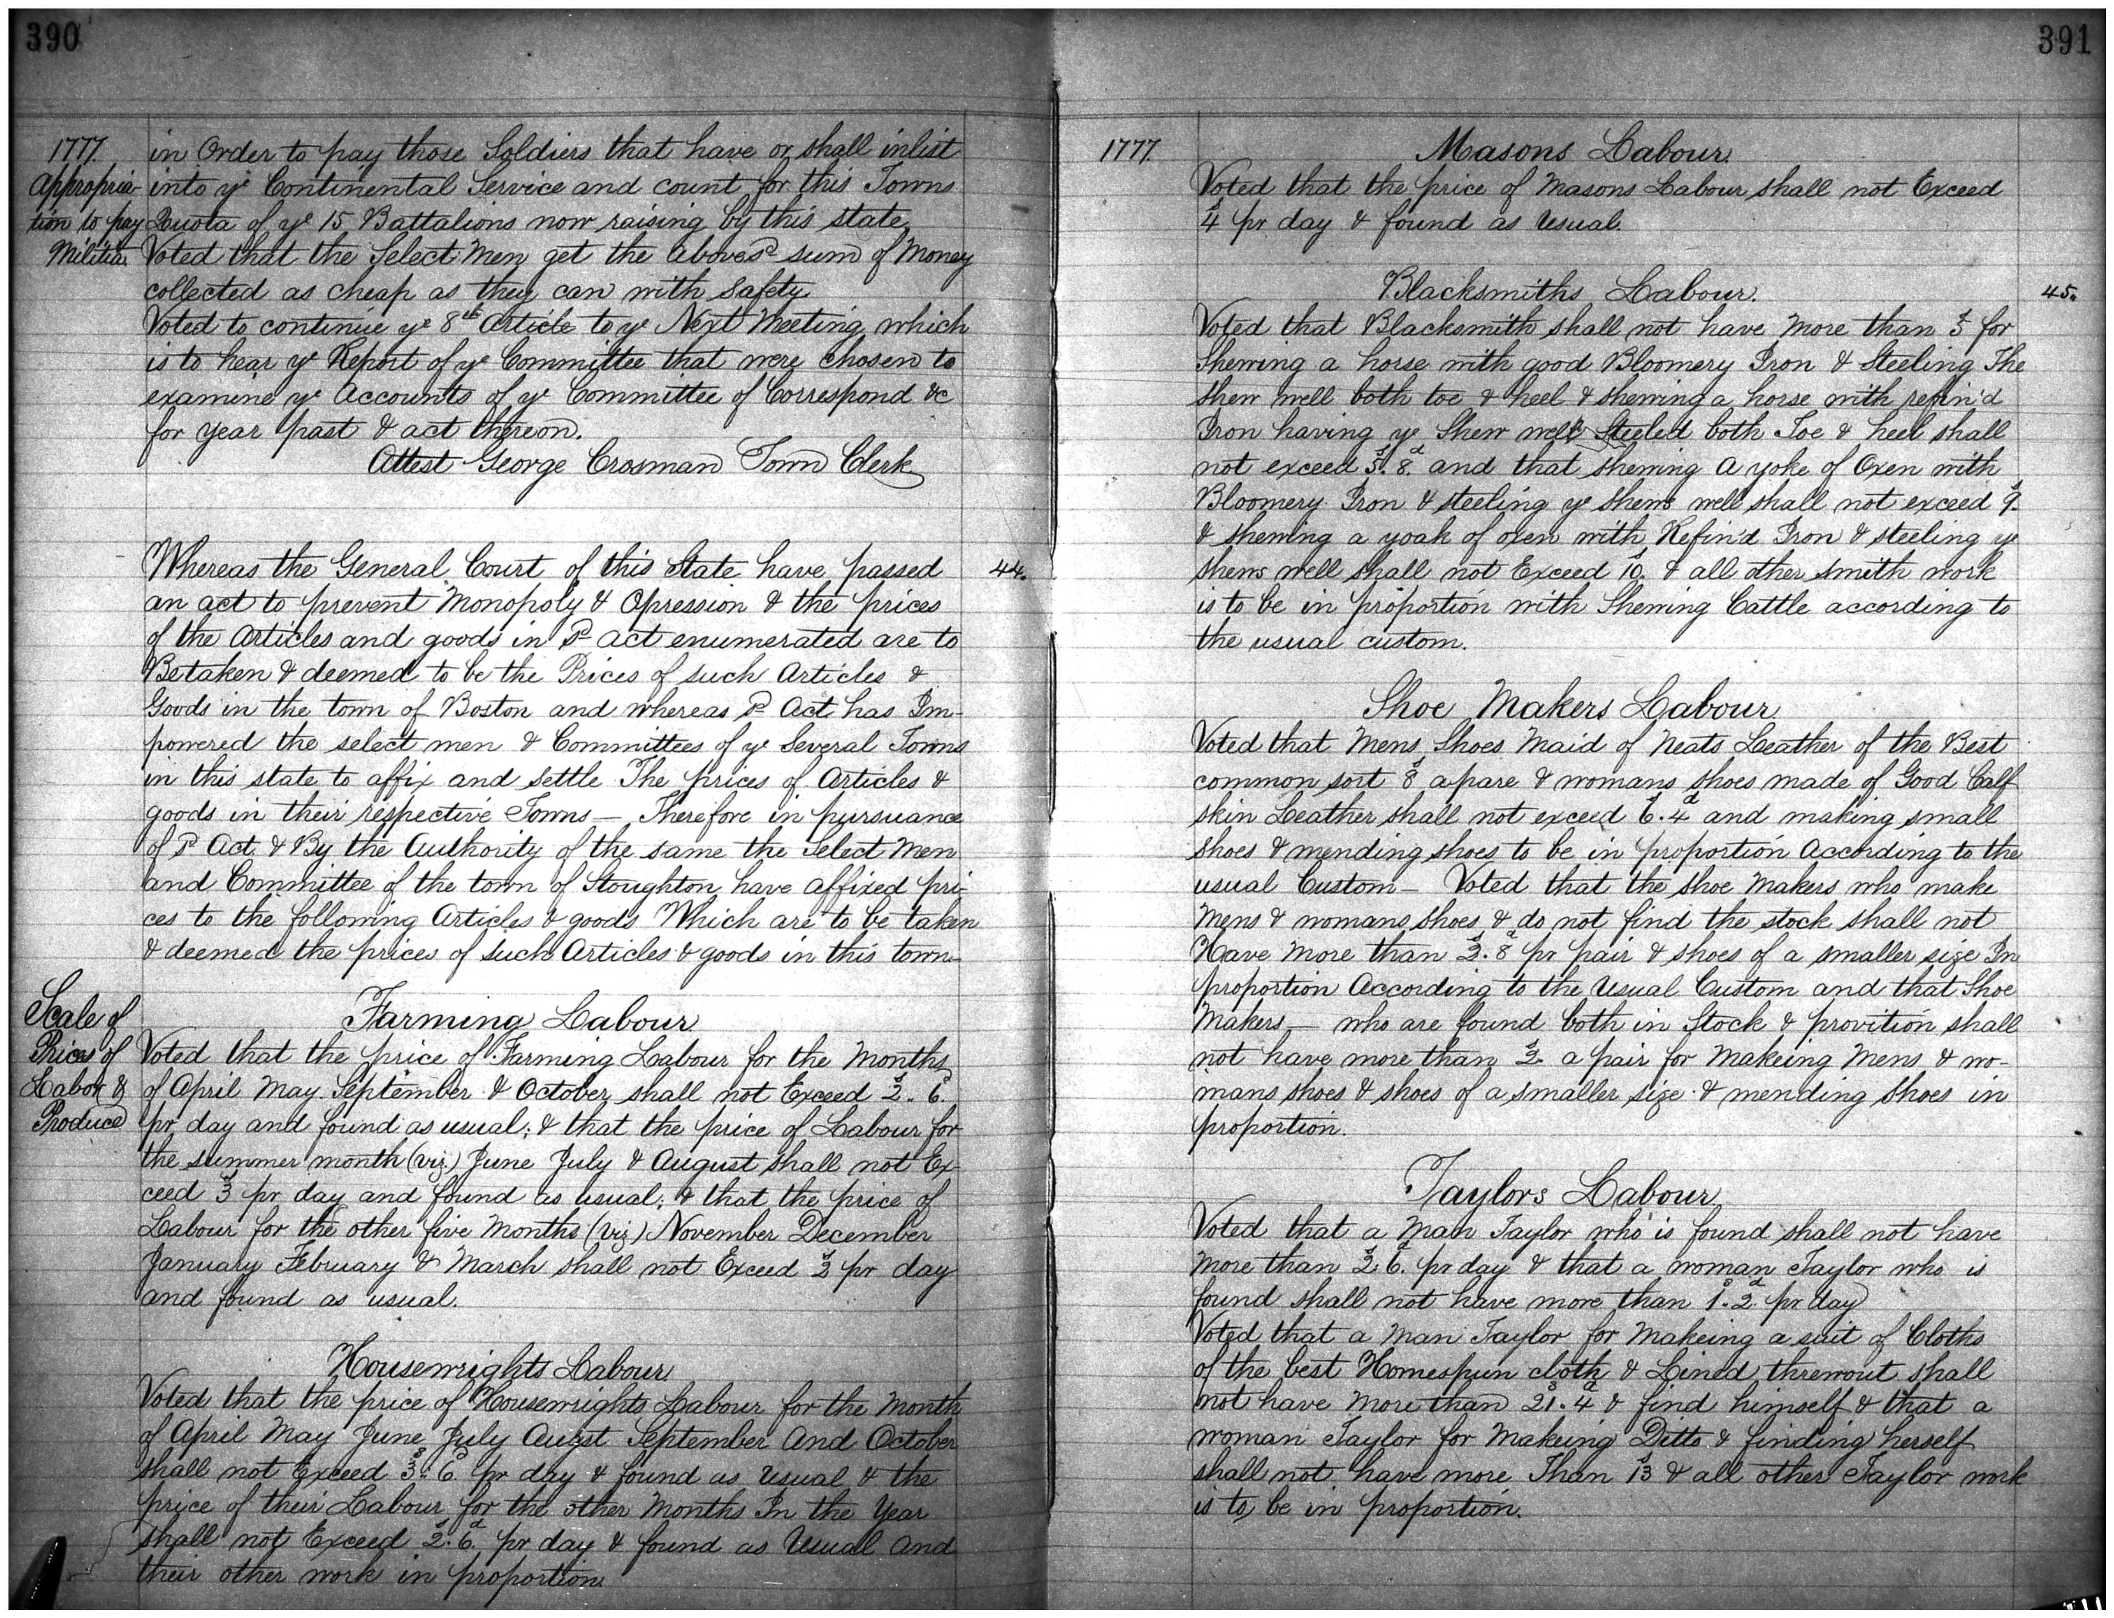 390
1777.
Appropria-
tion to pay
Militia
in Order to pay those Soldiers that have or shall inlist
into ye Continental Service and count for this Towns
Quota of ye 15 Battalions now raising by this state.
Voted that the Select Men get the aboves d sum of Money
collected as cheap as they can with safety
Voted to continue ye 8th Article to ye Next Meeting which
is to hear ye Report of ye Committee that were chosen to
examine ye Accounts of ye Committee of Correspond &c
for year past & act thereon.
Attest George Crosman Town Clerk
44.
Whereas the General Court of this State have passed
an act to prevent Monopoly & Opression & the prices
of the Articles and goods in sd act enumerated are to
Be taken & deemed to be the Prices of such Articles &
Goods in the town of Boston and whereas sd Act has Im-
powered the select men & Committees of ye Several Towns
in this state to affix and settle The prices of Articles &
goods in their respective Towns — Therefore in pursuance
of sd Act & By the Authority of the same the Select Men
and Committee of the town of Stoughton have affixed pri-
ces to the following Articles & goods Which are to be taken
& deemed the prices of such Articles & goods in this town-
Scale of
Prices of
Labor &
Produce
Farming Labour
Voted that the price of Farming Labour for the Months
of April May September & October shall not Exceed 2s. 6d.
pr day and found as usual; & that the price of Labour for
the summer month (viz.) June July & August shall not Ex-
ceed 3s pr day and found as usual; & that the price of
Labour for the other five Months (viz) November December
January February & March shall not Exceed 2s pr day
and found as usual.
Housewrights Labour
Voted that the price of Housewrights Labour for the Month
of April May June July Augst September And October
shall not Exceed 3s. 6d pr day & found as Usual & the
price of their Labour for the other Months In the Year
shall not Exceed 2s. 6d. pr day & found as Usual And
their other work in proportion.
391
1777.
Masons Labour.
Voted that the price of Masons Labour shall not Exceed
4s pr day & found as Usual.
Blacksmiths Labour.
45.
Voted that Blacksmith shall not have More than 5s for
Shewing a horse with good Bloomery Iron & Steeling The
shew well both toe & heel & shewing a horse with refin'd
Iron having ye Shew well Steeled both Toe & heel shall
not exceed 5s. 8d. and that shewing a yoke of Oxen with
Bloomery Iron & steeling ye shews well shall not exceed 9s.
& shewing a yoak of oxen with Refin'd Iron & steeling ye
shews well shall not Exceed 10s. & all other smith work
is to be in proportion with Shewing Cattle according to
the usual custom.
Shoe Makers Labour
Voted that Mens Shoes Maid of Neats Leather of the Best
common sort 8s a pare & womans shoes made of Good Calf
skin Leather shall not exceed 6s. 4d and making small
shoes & mending shoes to be in proportion According to the
usual Custom — Voted that the shoe Makers who make
Mens & womans shoes & do not find the stock shall not
Have More than 2s. 8d pr pair & shoes of a smaller size In
proportion According to the Usual Custom and that Shoe
Makers — who are found both in Stock & provition shall
not have more than 2s a pair for Makeing Mens & wo-
mans shoes & shoes of a smaller size & mending shoes in
proportion.
Taylors Labour
Voted that a Man Taylor who is found shall not have
More than 2s 6d. pr day & that a woman Taylor who is
found shall not have more than 1s. 2d. pr day
Voted that a Man Taylor for Makeing a suit of Cloths
of the best Homespun cloth & Lined threwout shall
not have More than 21s. 4d & find himself & that a
woman Taylor for Makeing Ditto & finding herself
shall not have more Than 13s & all other Taylor work
is to be in proportion.